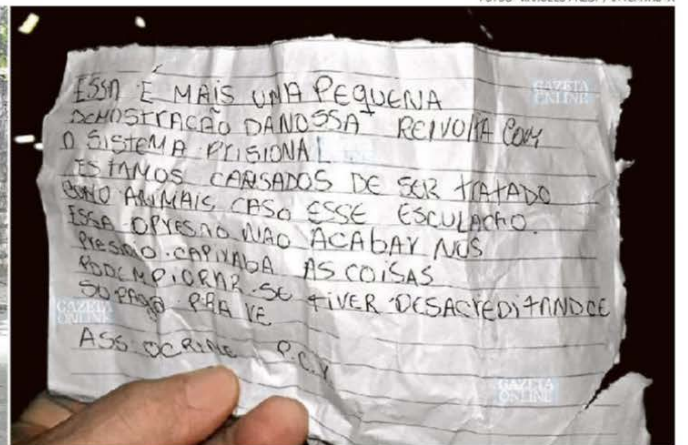 ESSA É MAIS UMA PEQUENA
DEMOSTRAÇÃO DANOSSA REIVOLTA COM
O SISTEMA PRISIONAL
ESTAMOS CANSADOS DE SER TRATADO
COMO ANIMAIS CASO ESSE ESCULACHO.
ESSA OPRESAO NAO ACABAR NOS
PRESIDIO CAPIXABA AS COISAS
PODEM PIORAR SE TIVER DESACREDITANDCE
SO PAGA PRA VE
ASS OCRIME P.C.V
GAZETA
ONLINE
GAZETA
ONLINE
GAZETA
ONLINE